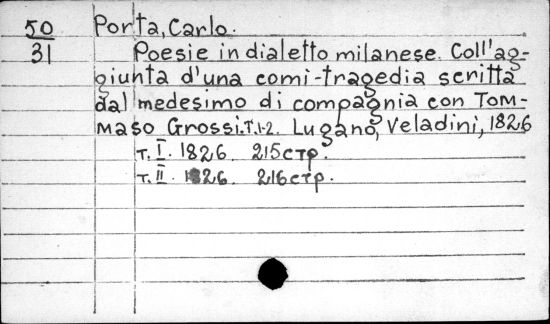 50
31
Porta, Carlo.
Poesie in dialetto milanese. Coll'ag-
giunta d'una comi-tragedia scritta
dal medesimo di compagnia con Tom-
maso Grossi. Т.1-2. Lugano, Veladini, 1826
т. I. 1826. 215 стр.
т. II. 1826. 216 стр.